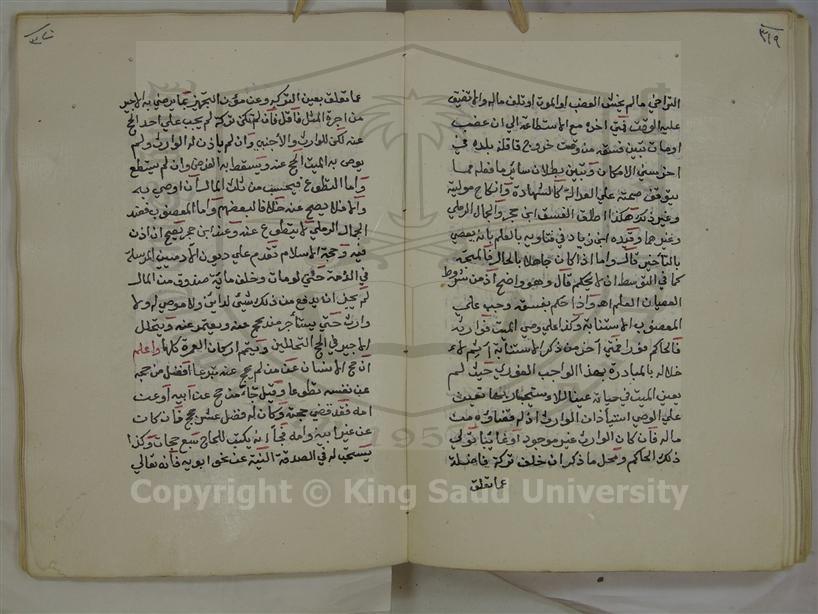 ٣١٩
التراخي ما لم يخش العضب او الموت او تلف ماله والا تضيق
عليه الوقت فمتى اخره مع الاستطاعة الى ان عضب
او مات تبين فسقه من وقت خروج قافلة بلده في
اخر سني الامكان وتبين بطلان سائر ما فعله مما
يتوقف صحته على العدالة كالشهادة وانكاح موليته
وغير ذلك هكذا اطلق الفسق ابن حجر والجمال الرملي
وغيرهما وقيده ابن زياد في فتاويه بالعلم بانه يعصي
بالتأخير قال واما اذا كان جاهلا بالحال فالمتجه
كما في التوسط ان لا يحكم قال وهو واضح اذ من شروط
العصيان العلم اهـ واذا حكم بفسقه وجب على
المعضوب الاستنابة وكذا على وصي الميت فوارثه
فالحاكم فورا فمتى اخر من ذكر الاستنابة اثم لاء
خلاله بالمبادرة بهذا الواجب الفوري حيث لم
يعين الميت في حياته عينا للاستيجار بها تعين
على الوصي استيأذان الوارث اذ له قضاؤه من
ماله فان كان الوارث غير موجود او غائبا تولى
ذلك الحاكم ومحل ما ذكر ان خلف تركة فاضلة
عما تعلق
٣٢٠
عما تعلق بعين التركة وعن مؤن التجهيز بما يرضى به الاجير
من اجرة المثل فاقل فان لم تكن تركة لم يجب على احد الحج
عنه لكن للوارث والاجنبي وان لم ياذن له الوارث ولم
يوصى به الميت الحج عنه ويسقط به الفرض وان لم يستطع
واما التطوع فيحسب من ثلث المال ان اوصى به
والا فلا يصح عنه خلافا لبعضهم واما المعضوب فعند
الجمال الرملي لا يتطوع عنه وعند ابن حجر يصح ان اذن
فيه وحجة الاسلام تقدم على ديون الادميين المرسلة
في الذمة حتى لو مات وخلف ماية صندوق من المال
لم يجز ان يدفع من ذلك شئ لدائن ولا موصى له ولا
وارث حتى يستأجر من يحج عنه ويعتمر عنه ويتحلل
الاجير في الحج التحللين ويتم اركان العمرة كلها واعلم
ان حج الانسان عن من لم يحج عنه تبرعا افضل من حجه
عن نفسه تطوعا وقيل جاء من حج عن ابيه او عن
امه فقد قضى حجته وكان له فضل عشر حجج فان كان
عن غير ابيه وامه فجاء انه يكتب للحاج سبع حجات وكذا
يستحب له في الصدقة النية عن نحو ابويه فانه تعالى
Copyright © King Saud University